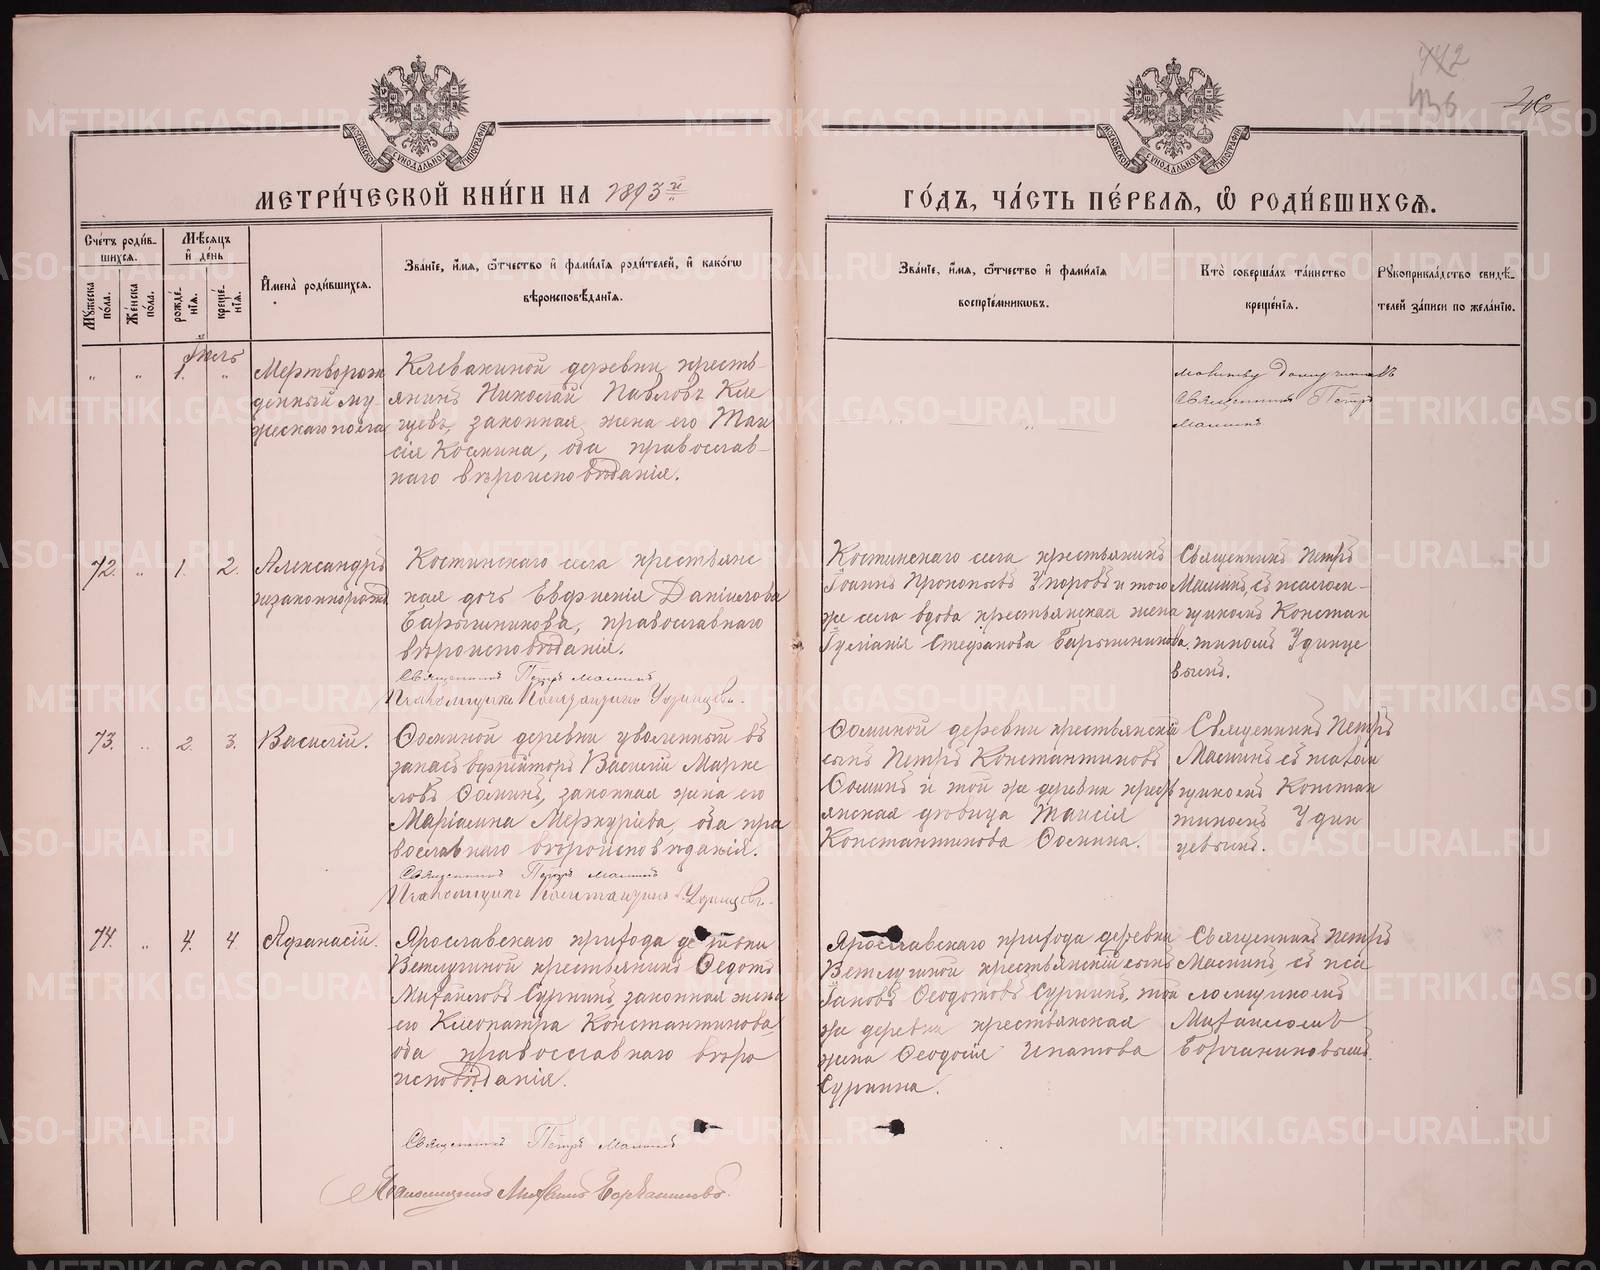 442
436
46
МОСКОВСКОЙ СѴНОДАЛЬНОЙ ТИПОГРАФІИ
МОСКОВСКОЙ СѴНОДАЛЬНОЙ ТИПОГРАФІИ
МЕТРИ́ЧЕСКОЙ КНИ́ГИ НА 1893й
ГО́ДЪ, ЧА́СТЬ ПЕ́РВАЯ, Ѡ҆ РОДИ́ВШИХСЯ.
Сче́тъ роди́в-
шихся.
Мꙋ́жеска по́ла.
Же́нска по́ла.
Мѣ́сяцъ
и҆ де́нь
рожде́-нїѧ.
креще́-нїѧ.
И҆мена̀ роди́вшихся.
Зва́нїе, и҆́мѧ, ѻ҆́тчество и҆ фами́лїѧ роди́телей, и҆ како́гѡ
вѣроисповѣ́данїѧ.
Зва́нїе, и҆́мѧ, ѻ҆́тчество и҆ фами́лїѧ
воспрїе́мникѡвъ.
Кто̀ соверша́лъ та́инство
креще́нїѧ.
Рꙋкоприкла́дство свидѣ́-
телей за́писи по жела́нїю.
" " 1. "
Мертворож
денный му-
жескаго пола
Клевакиной деревни кресть-
янинъ Николай Павловъ Кле
цевъ, законная жена его Таи
сія Космина, оба православ-
наго вѣроисповѣданія.
молитву
Священникъ Петръ
Маминъ
72. " 1. 2.
Александръ
незаконнорожд
Костинскаго села крестьянс
кая дочь Евфиенія Даніилова
Барышникова, православнаго
вѣроисповѣданія.
Священникъ Петръ Маминъ
Псаломщикъ Константинъ Удинцевъ.
Костинскаго села крестьянинъ
Іоаннъ Прокопьевъ Упоровъ и того
же села вдова крестьянская жена
Іуліанія Стефанова Барышникова.
Священникъ Петръ
Маминъ съ псалом-
щикомъ Констан
тиномъ Удинце
вымъ.
73. " 2. 3.
Василій.
Ѳоминой деревни уволенный въ
запасъ ефрейторъ Василій Марке
ловъ Ѳоминъ, законная жена его
Маріамна Меркуріева, оба пра
вославнаго вѣроисповѣданія.
Священникъ Петръ Маминъ
Псаломщикъ Константинъ Удинцевъ.
Ѳоминой деревни крестьянскій
сынъ Петръ Константиновъ
Ѳоминъ и той же деревни кресть
янская дѣвица Таисія
Константинова Ѳомина.
Священникъ Петръ
Маминъ съ псалом
щикомъ Констан
тиномъ Удин
цевымъ.
74. " 4. 4
Аѳанасій.
Ярославскаго прихода деревни
Ветлугиной крестьянинъ Ѳедотъ
Михаиловъ Суркинъ, законная жена
его Клеопатра Константинова
оба православнаго вѣро
исповѣданія.
Священникъ Петръ Маминъ
Псаломщикъ Михаилъ Борчаниновъ.
Ярославскаго прихода деревни
Ветлугиной крестьянскій сынъ
Іаковъ Ѳеодотовъ Суркинъ, той
же деревни крестьянская
жена Ѳеодосія Ипатова
Суркина.
Священникъ Петръ
Маминъ, съ пса
ломщикомъ
Михаиломъ
Борчаниновымъ.
METRIKI.GASO-URAL.RU